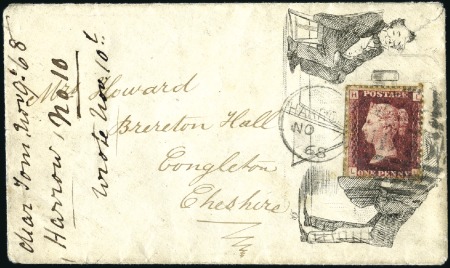 Mrs Howard
Brereton Hall
Congleton
Cheshire
dear Tom. Nov 9. 68
Harrow, No. 10
wrote Nov. 10t
HARROW
NO
68
POSTAGE
ONE PENNY
H
L